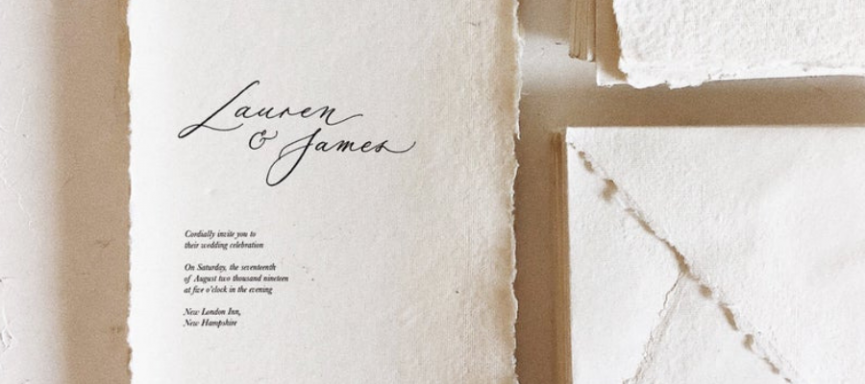 Lauren
& James
Cordially invite you to
their wedding celebration
On Saturday, the seventeenth
of August two thousand nineteen
at five o'clock in the evening
New London Inn,
New Hampshire